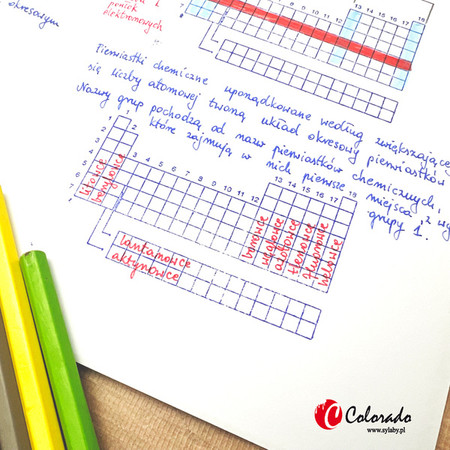 okresowym
powłok
elektronowych
12 13 14 15 16 17 18
Pierwiastki chemiczne uporządkowane według zwiększającej
się liczby atomowej tworzą układ okresowy pierwiastków
Nazwy grup pochodzą od nazw pierwiastków chemicznych,
które zajmują w nich pierwsze miejsca, z wy
grupy 1.
1 2 3 4 5 6 7 8 9 10 11 12 13 14 15 16 17 18
litowce
berylowce
borowce
węglowce
azotowce
tlenowce
fluorowce
helowce
lantanowce
aktynowce
Colorado
www.sylaby.pl